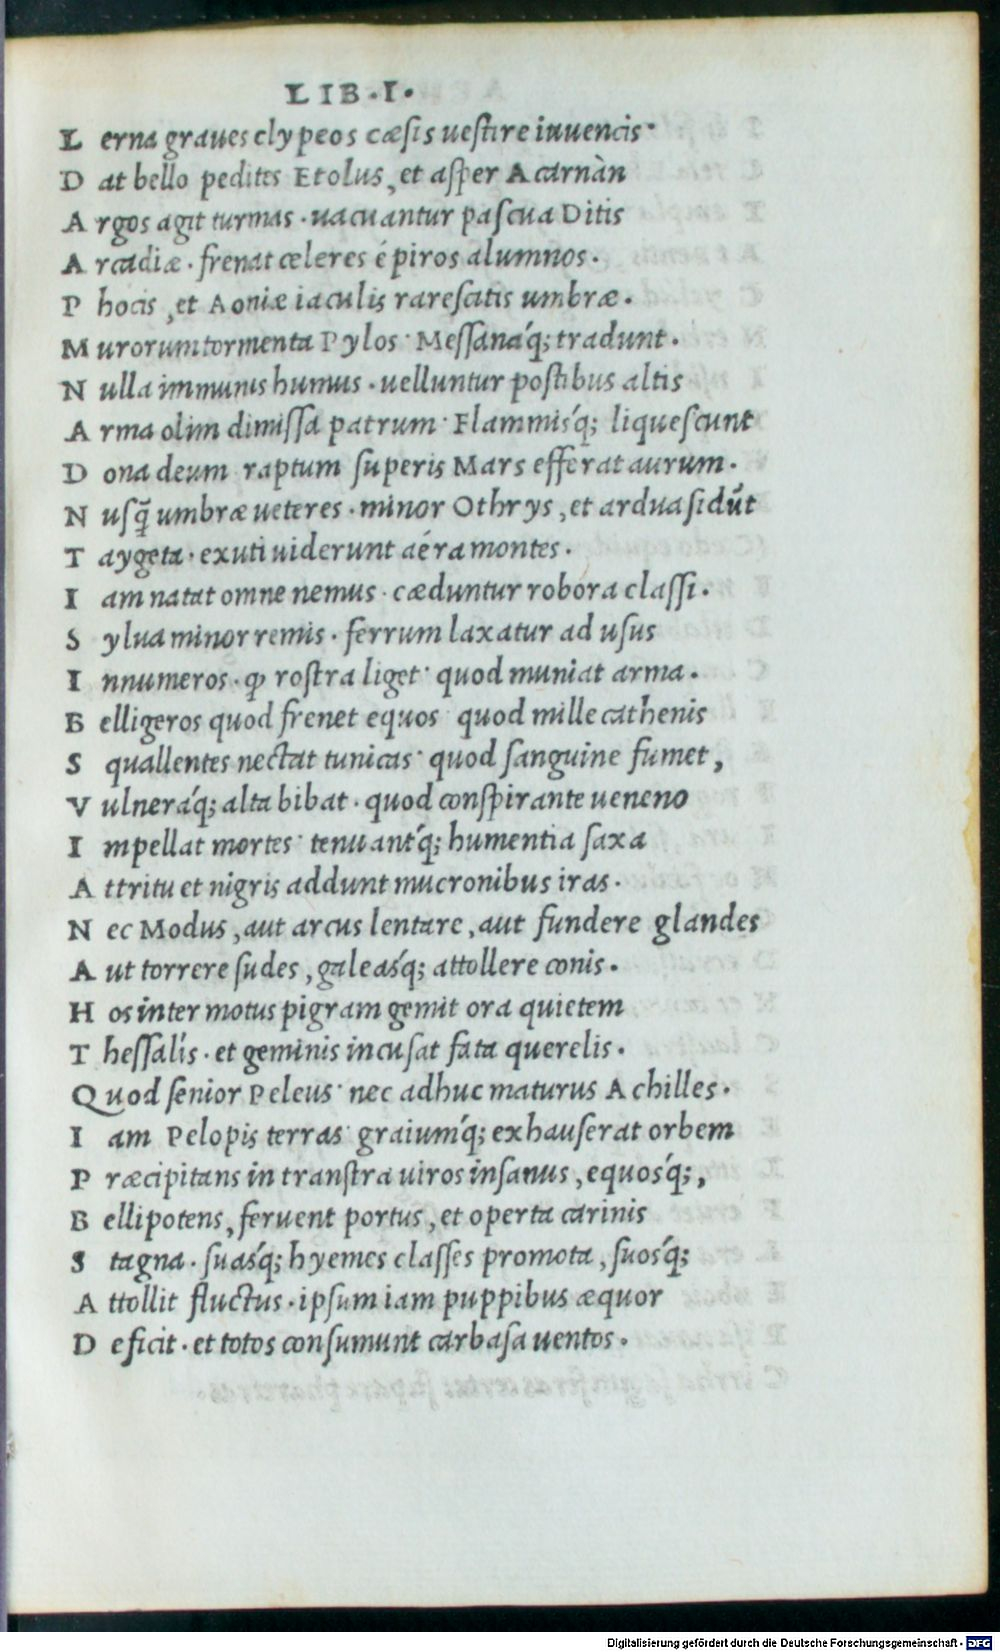 LIB. I.
L erna graues clypeos cæsis uestire iuuencis·
D at bello pedites Etolus, et asper Acarnàn
A rgos agit turmas · uacuantur pascua Ditis
A rcadiæ · frenat celeres épiros alumnos.
P hocis, et Aoniæ iaculis rarescitis umbræ.
M urorum tormenta Pylos· Messanáq; tradunt.
N ulla immunis humus · uelluntur postibus altis
A rma olim dimissa patrum· Flammisq́; liquescunt
D ona deum raptum superis Mars efferat aurum.
N usq̃ umbræ ueteres · minor Othrys, et ardua sidũt
T aygeta · exuti uiderunt aéra montes.
I am natat omne nemus · cæduntur robora classi.
S ylua minor remis · ferrum laxatur ad usus
I nnumeros · ꝙ rostra liget· quod muniat arma.
B elligeros quod frenet equos· quod mille cathenis
S quallentes nectat tunicas· quod sanguine fumet,
V ulneráq; alta bibat · quod conspirante ueneno
I mpellat mortes· tenuantq́; humentia saxa
A ttritu et nigris addunt mucronibus iras.
N ec Modus, aut arcus lentare, aut fundere glandes
A ut torrere sudes, galeasq́; attollere conis.
H os inter motus pigram gemit ora quietem
T hessalís · et geminis incusat fata querelis.
Quod senior Peleus· nec adhuc maturus Achilles.
I am Pelopis terras· graiumq́; exhauserat orbem
P ræcipitans in transtra uiros insanus, equosq́;,
B ellipotens, feruent portus, et operta carinis
S tagna · suasq́; hyemes classes promota, suosq́;
A ttollit fluctus · ipsum iam puppibus æquor
D eficit · et totos consumunt carbasa uentos.
Digitalisierung gefördert durch die Deutsche Forschungsgemeinschaft - DFG